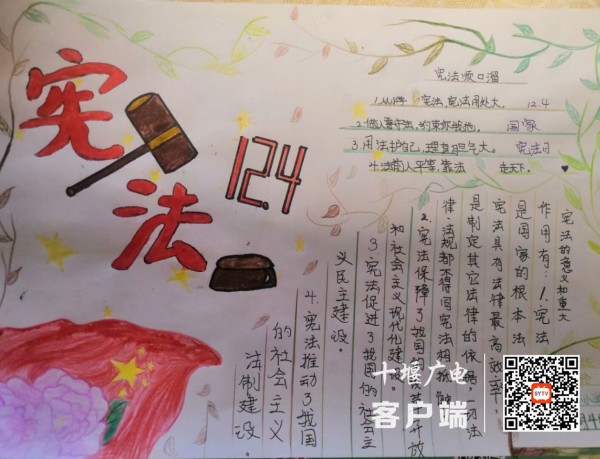 宪法
12.4
宪法顺口溜
1.从小学宪法,宪法用处大。 12.4
2.做人要守法,约束你我他。 国家
3.用法护自己,理直胆气大。 宪法日
4.法前人平等,靠法走天下。
宪法的意义和重大
作用有:1.宪法
是国家的根本法
宪法具有法律最高效率,
是制定其它法律的依据,一切法
律、法规都不得同宪法相抵触
2.宪法保障了我国的改革开放
和社会主义现代化建设。
3.宪法促进了我国的社会主
义民主建设。
4.宪法推动了我国
的社会主义
法制建设。
十堰广电
客户端
SYTV